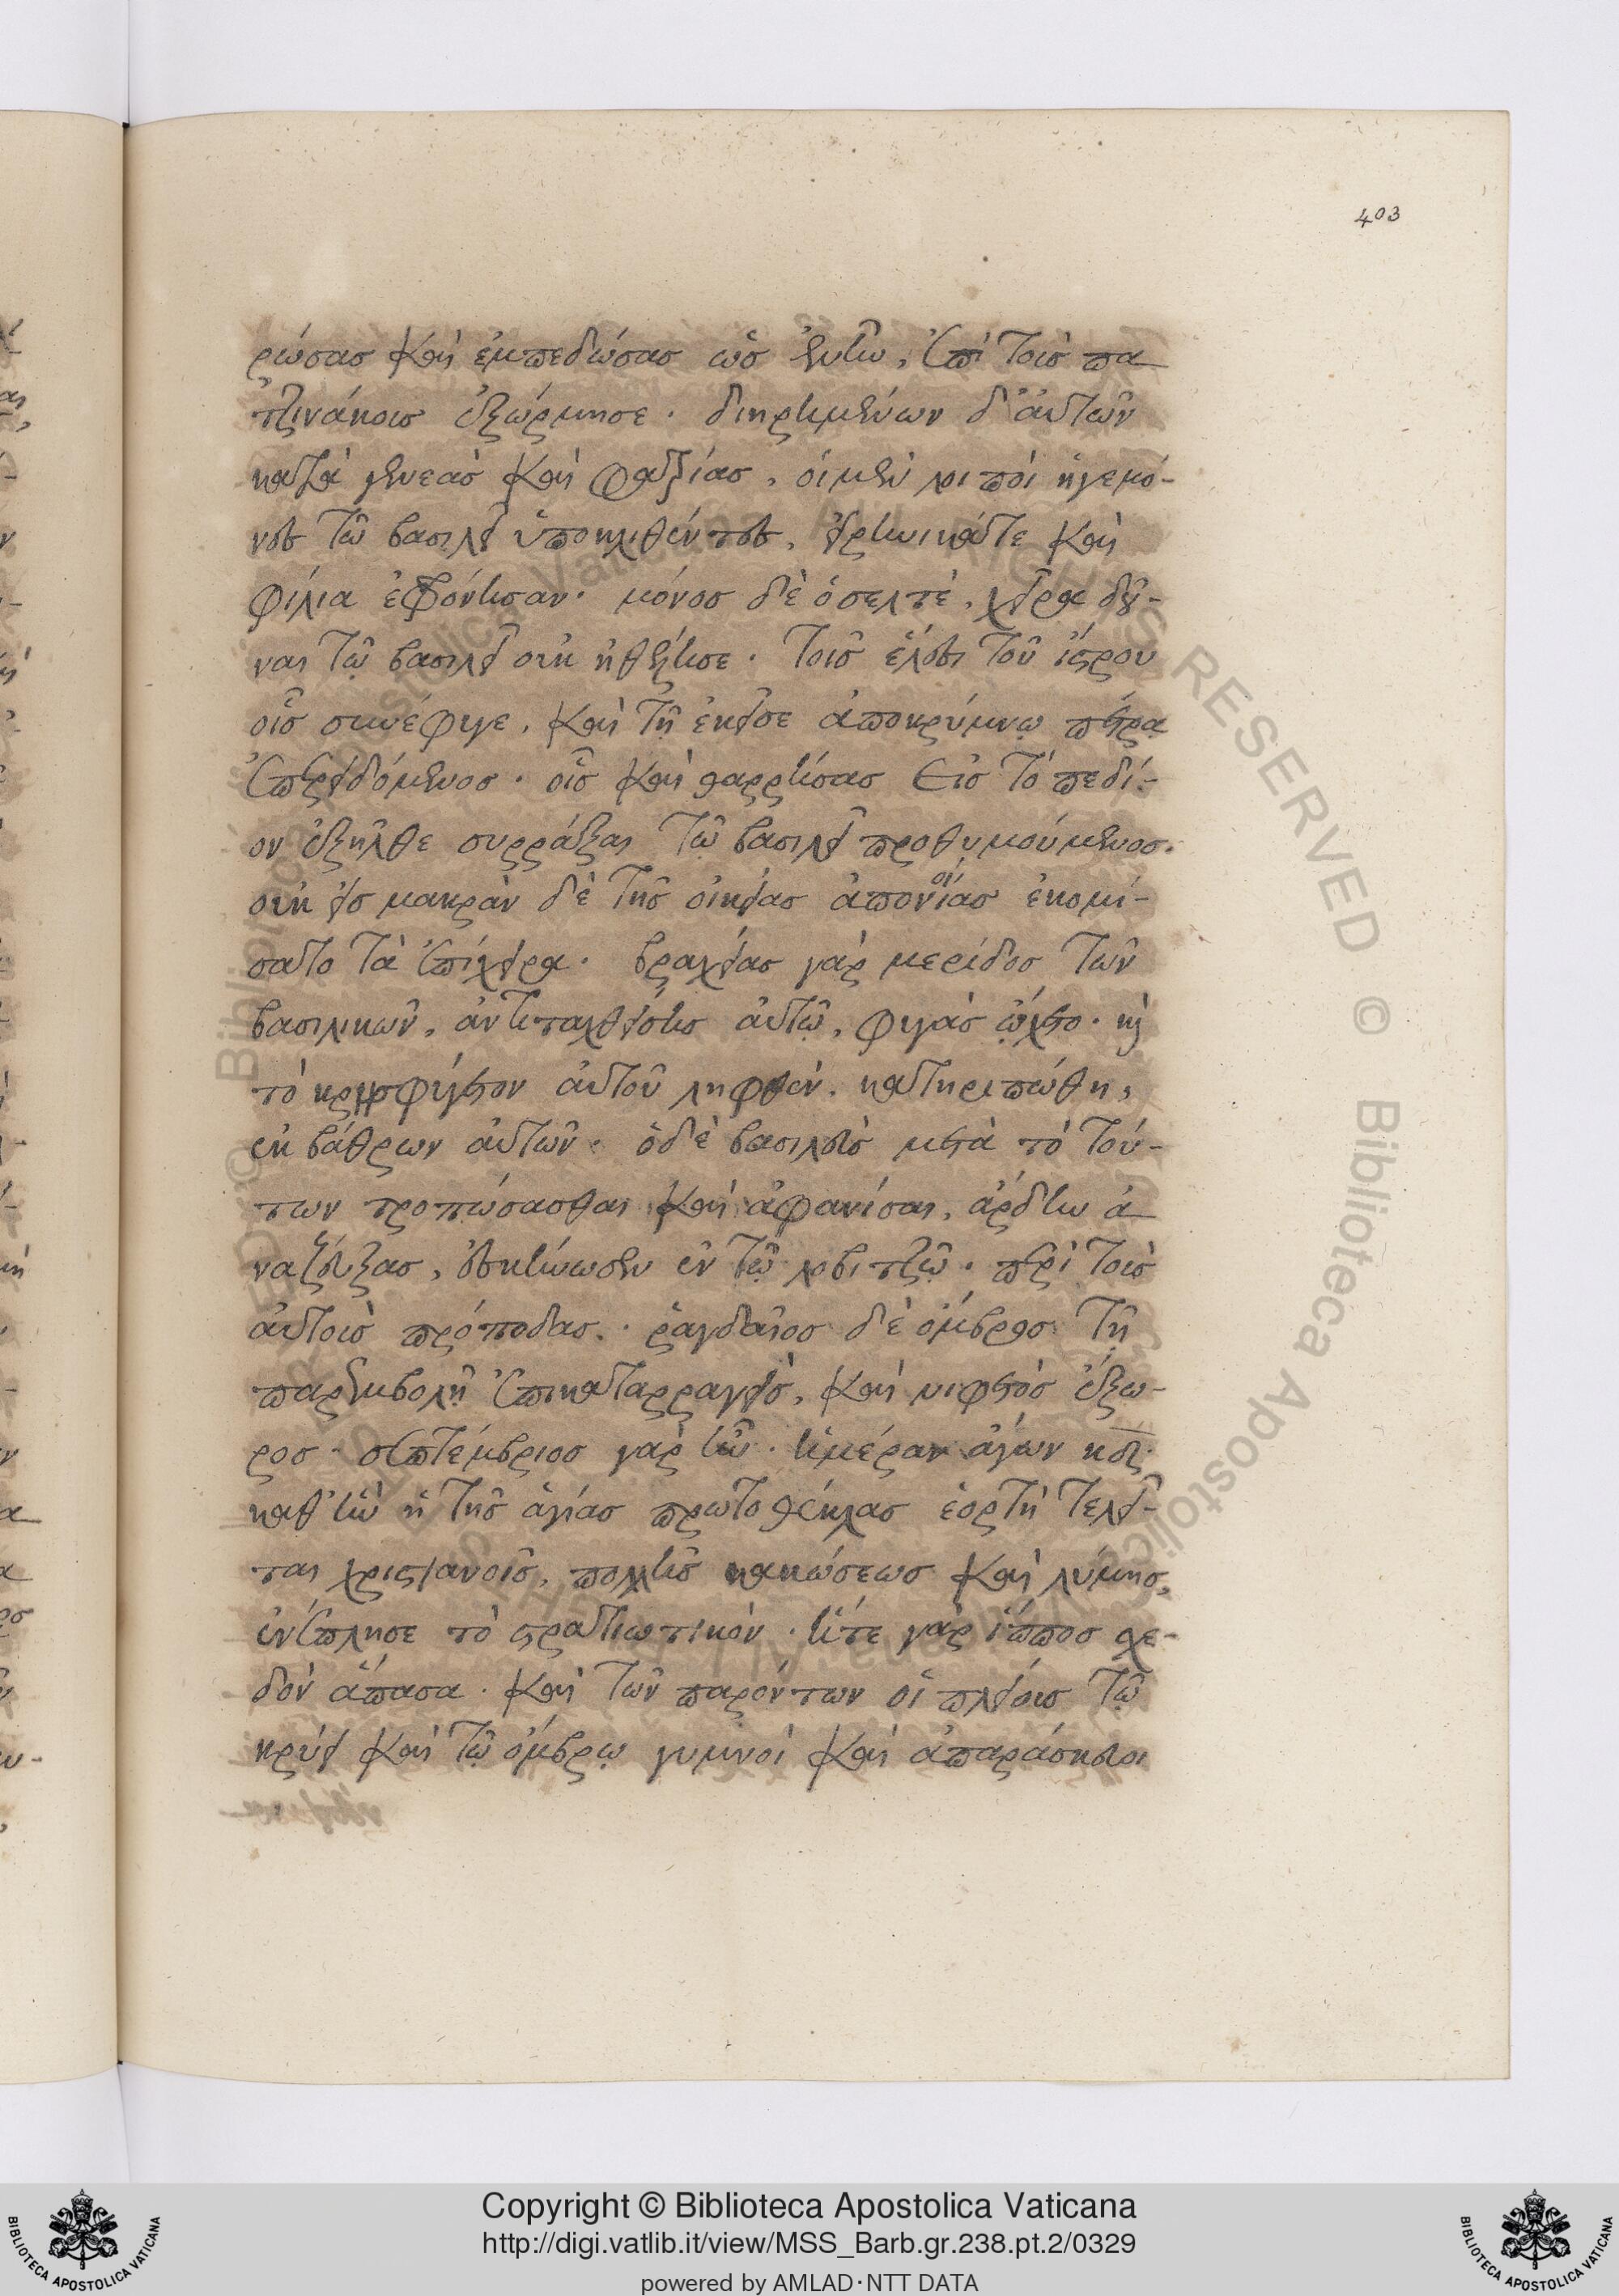 403
ρώσας καὶ ἐμπεδώσας ὡς ἐνῆν, ἐπὶ τοὺς πα
τζινάκους ἐξώρμησε. διηρημένων δ' αὐτῶν
κατὰ γενεὰς καὶ φατρίας, οἱ μὲν λοιποὶ ἡγεμό-
νες τῶ βασιλεῖ ὑποκλιθέντες, εἰρηνικά τε καὶ
φίλια ἐφρόντισαν. μόνος δὲ ὁ σελτὲ, χεῖρα δοῦ-
ναι τῷ βασιλεῖ οὐκ ἠθέλησε. τοῖς ἕλεσι τοῦ ἴστρου
οἷς συνέφυγε, καὶ τῇ ἐκεῖσε ἀποκρύμνῳ πέτρᾳ
ἐπερειδόμενος. οἷς καὶ θαρρήσας εἰς τὸ πεδί-
ον ἐξῆλθε συρράξαι τῷ βασιλεῖ προθυμούμενος.
οὐκ εἰς μακρὰν δὲ τῆς οἰκείας ἀπονοίας ἐκομί-
σατο τὰ ἐπίχειρα. βραχείας γὰρ μερίδος τῶν
βασιλικῶν, ἀντιταχθείσης αὐτῷ, φυγὰς ᾤχετο. καὶ
τὸ κρησφύγετον αὐτοῦ ληφθὲν, κατηριπώθη,
ἐκ βάθρων αὐτῶν. ὁ δὲ βασιλεὺς μετὰ τὸ τού-
των τροπώσασθαι καὶ ἀφανίσαι, ἄρδην ἀ
ναζεύξας, ἐσκήνωσεν ἐν τῷ λοβιτζῷ. περὶ τοὺς
αὐτοὺς πρόποδας. ῥαγδαῖος δὲ ὄμβρος τῇ
παρεμβολῇ ἐπικαταρραγεὶς, καὶ νιφετὸς ἔξω-
ρος. σεπτέμβριος γὰρ ἦν. ἡμέραν ἄγων κδ.
καθ' ἣν ἡ τῆς ἁγίας πρωτοθέκλας ἑορτὴ τελεῖ-
ται χριστιανοῖς, πολλῆς κακώσεως καὶ λύμης,
ἐνέπλησε τὸ στρατιωτικὸν. ἥ τε γὰρ ἵππος σχε-
δὸν ἅπασα. καὶ τῶν παρόντων οἱ πλείους τῷ
κρύει καὶ τῷ ὄμβρῳ γυμνοὶ καὶ ἀπαράσκευοι
Copyright © Biblioteca Apostolica Vaticana
http://digi.vatlib.it/view/MSS_Barb.gr.238.pt.2/0329
powered by AMLAD·NTT DATA
BIBLIOTECA APOSTOLICA VATICANA
BIBLIOTECA APOSTOLICA VATICANA